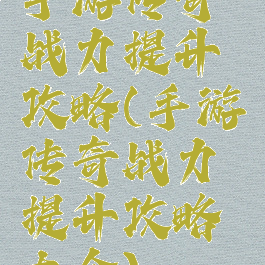 手游传奇
战力提升
攻略(手游
传奇战力
提升攻略
大全)